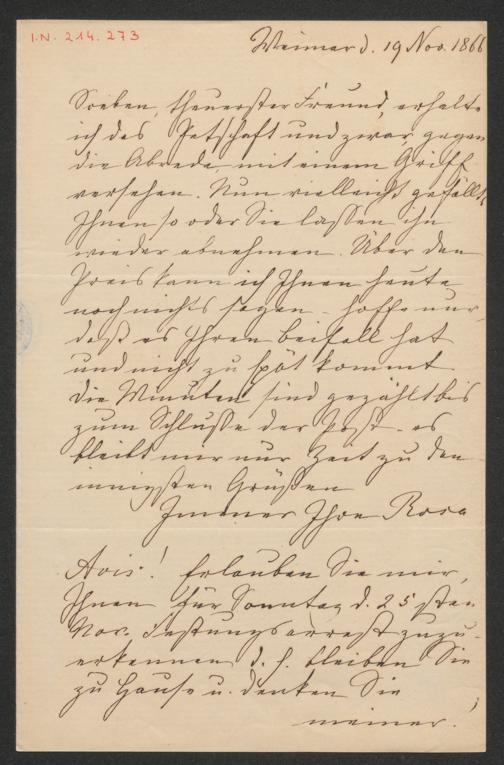 I.N. 214.273
Weimar d. 19 Nov. 1866
Soeben, theuerster Freund, erhalte
ich das Petschaft und zwar, gegen
die Abrede, mit einem Griff
versehen. Nun vielleicht gefällt's
Ihnen so oder Sie lassen ihn
wieder abnehmen. Über den
Preis kann ich Ihnen heute
noch nichts sagen – hoffe nur,
daß es Ihren Beifall hat
und nicht zu spät kommt.
Die Minuten sind gezählt bis
zum Schlusse der Post – es
bleibt mir nur Zeit zu den
innigsten Grüßen
Immer Ihre Rosa
Avis! Erlauben Sie mir,
Ihnen für Sonntag d. 25 sten
Nov. Festungsarrest zuzu-
erkennen d. h. bleiben Sie
zu Hause u. denken Sie
meiner!